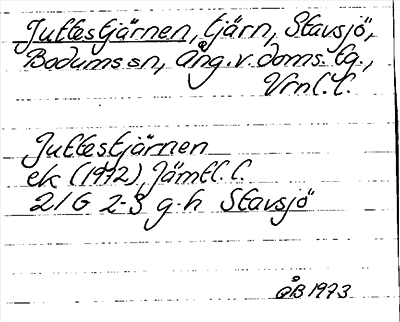 Juttestjärnen, tjärn, Stavsjö,
Bodums sn, Ång. v. doms. tg.,
Vrnl. l.
Juttestjärnen
ek (1972), Jämtl. l.
21 G 2-3 g-h Stavsjö
GB 1973